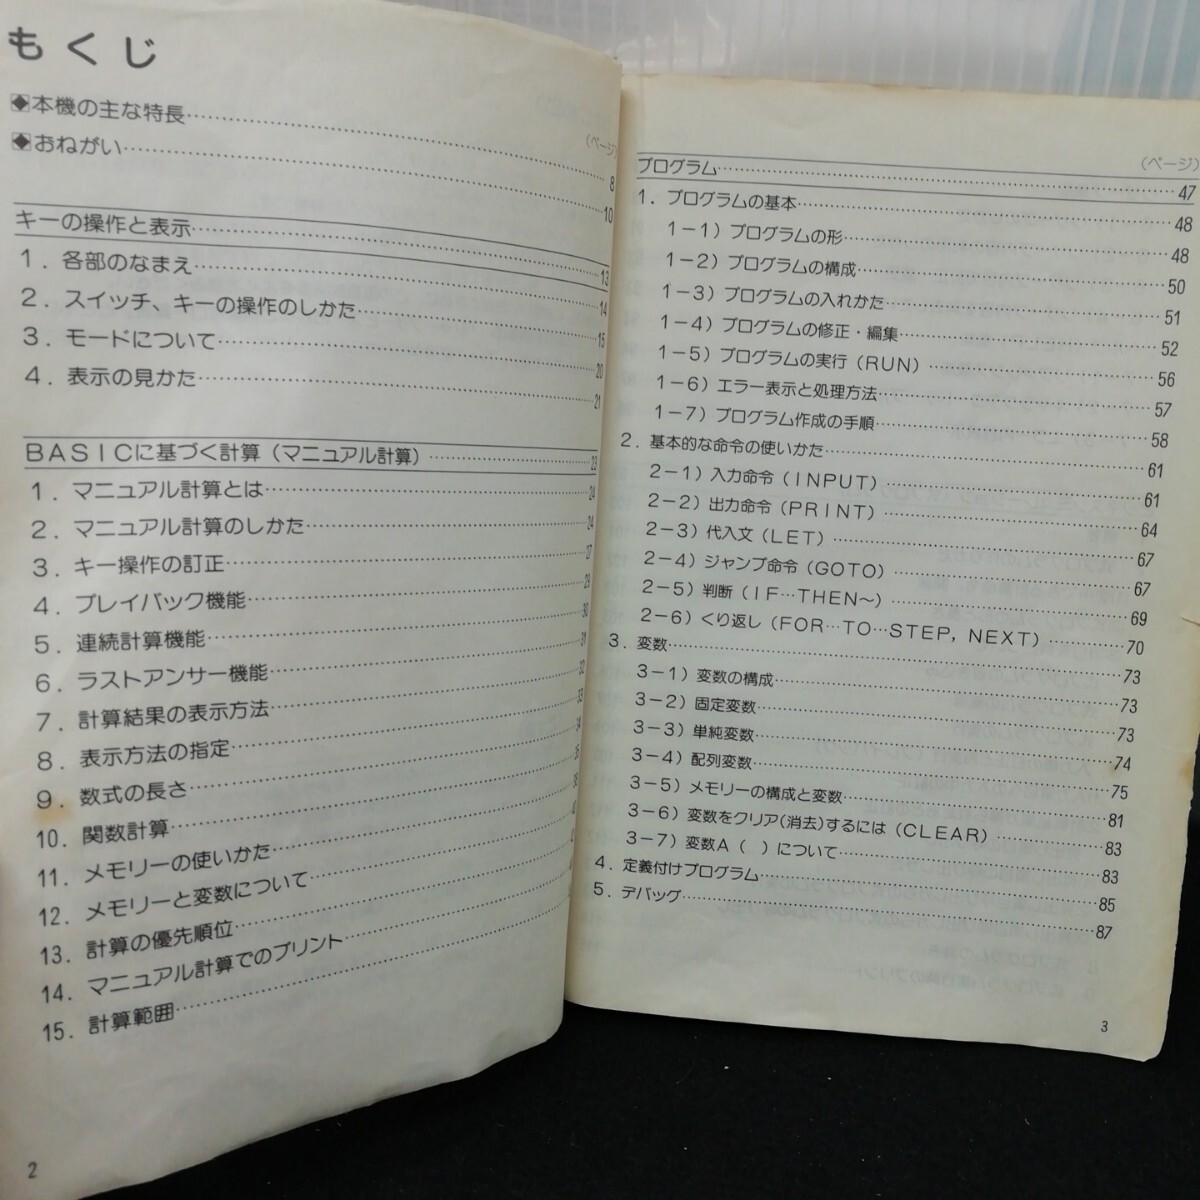 もくじ
(ページ)
◆本機の主な特長……8
◆おねがい……10
キーの操作と表示……13
1. 各部のなまえ……14
2. スイッチ、キーの操作のしかた……15
3. モードについて……20
4. 表示の見かた……21
BASICに基づく計算(マニュアル計算)……23
1. マニュアル計算とは……24
2. マニュアル計算のしかた……24
3. キー操作の訂正……27
4. プレイバック機能……29
5. 連続計算機能……30
6. ラストアンサー機能……31
7. 計算結果の表示方法……32
8. 表示方法の指定……33
9. 数式の長さ……34
10. 関数計算……
11. メモリーの使いかた……
12. メモリーと変数について……
13. 計算の優先順位……
14. マニュアル計算でのプリント……
15. 計算範囲……
2
(ページ)
プログラム……47
1. プログラムの基本……48
1−1)プログラムの形……48
1−2)プログラムの構成……50
1−3)プログラムの入れかた……51
1−4)プログラムの修正・編集……52
1−5)プログラムの実行(RUN)……56
1−6)エラー表示と処理方法……57
1−7)プログラム作成の手順……58
2. 基本的な命令の使いかた……61
2−1)入力命令(INPUT)……61
2−2)出力命令(PRINT)……64
2−3)代入文(LET)……67
2−4)ジャンプ命令(GOTO)……67
2−5)判断(IF…THEN〜)……69
2−6)くり返し(FOR…TO…STEP, NEXT)……70
3. 変数……73
3−1)変数の構成……73
3−2)固定変数……73
3−3)単純変数……74
3−4)配列変数……75
3−5)メモリーの構成と変数……81
3−6)変数をクリア(消去)するには(CLEAR)……83
3−7)変数A( )について……83
4. 定義付けプログラム……85
5. デバッグ……87
3